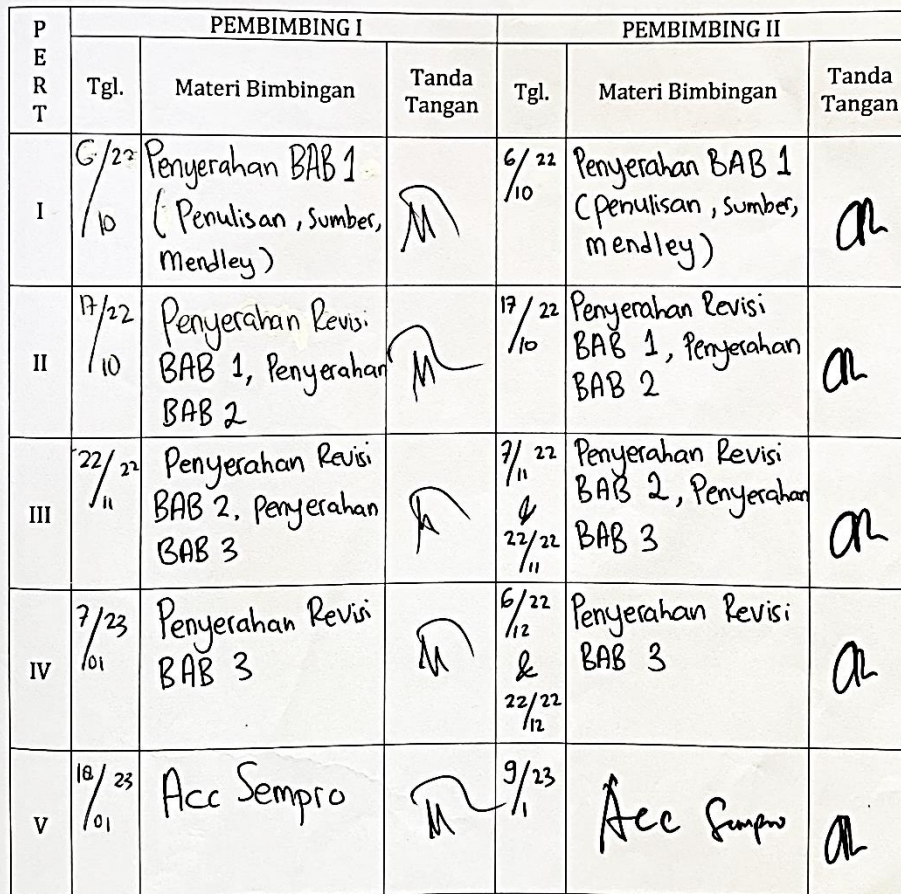 PERT
PEMBIMBING I
PEMBIMBING II
Tgl.
Materi Bimbingan
Tanda
Tangan
Tgl.
Materi Bimbingan
Tanda
Tangan
I
6/22
/10
Penyerahan BAB 1
(Penulisan, Sumber,
Mendley)
6/22
/10
Penyerahan BAB 1
(penulisan, sumber,
mendley)
II
17/22
/10
Penyerahan Revisi
BAB 1, Penyerahan
BAB 2
17/22
/10
Penyerahan Revisi
BAB 1, Penyerahan
BAB 2
III
22/22
/11
Penyerahan Revisi
BAB 2, Penyerahan
BAB 3
7/22
/11
&
22/22
/11
Penyerahan Revisi
BAB 2, Penyerahan
BAB 3
IV
7/23
/01
Penyerahan Revisi
BAB 3
6/22
/12
&
22/22
/12
Penyerahan Revisi
BAB 3
V
18/23
/01
Acc Sempro
9/23
/1
Acc Sempro